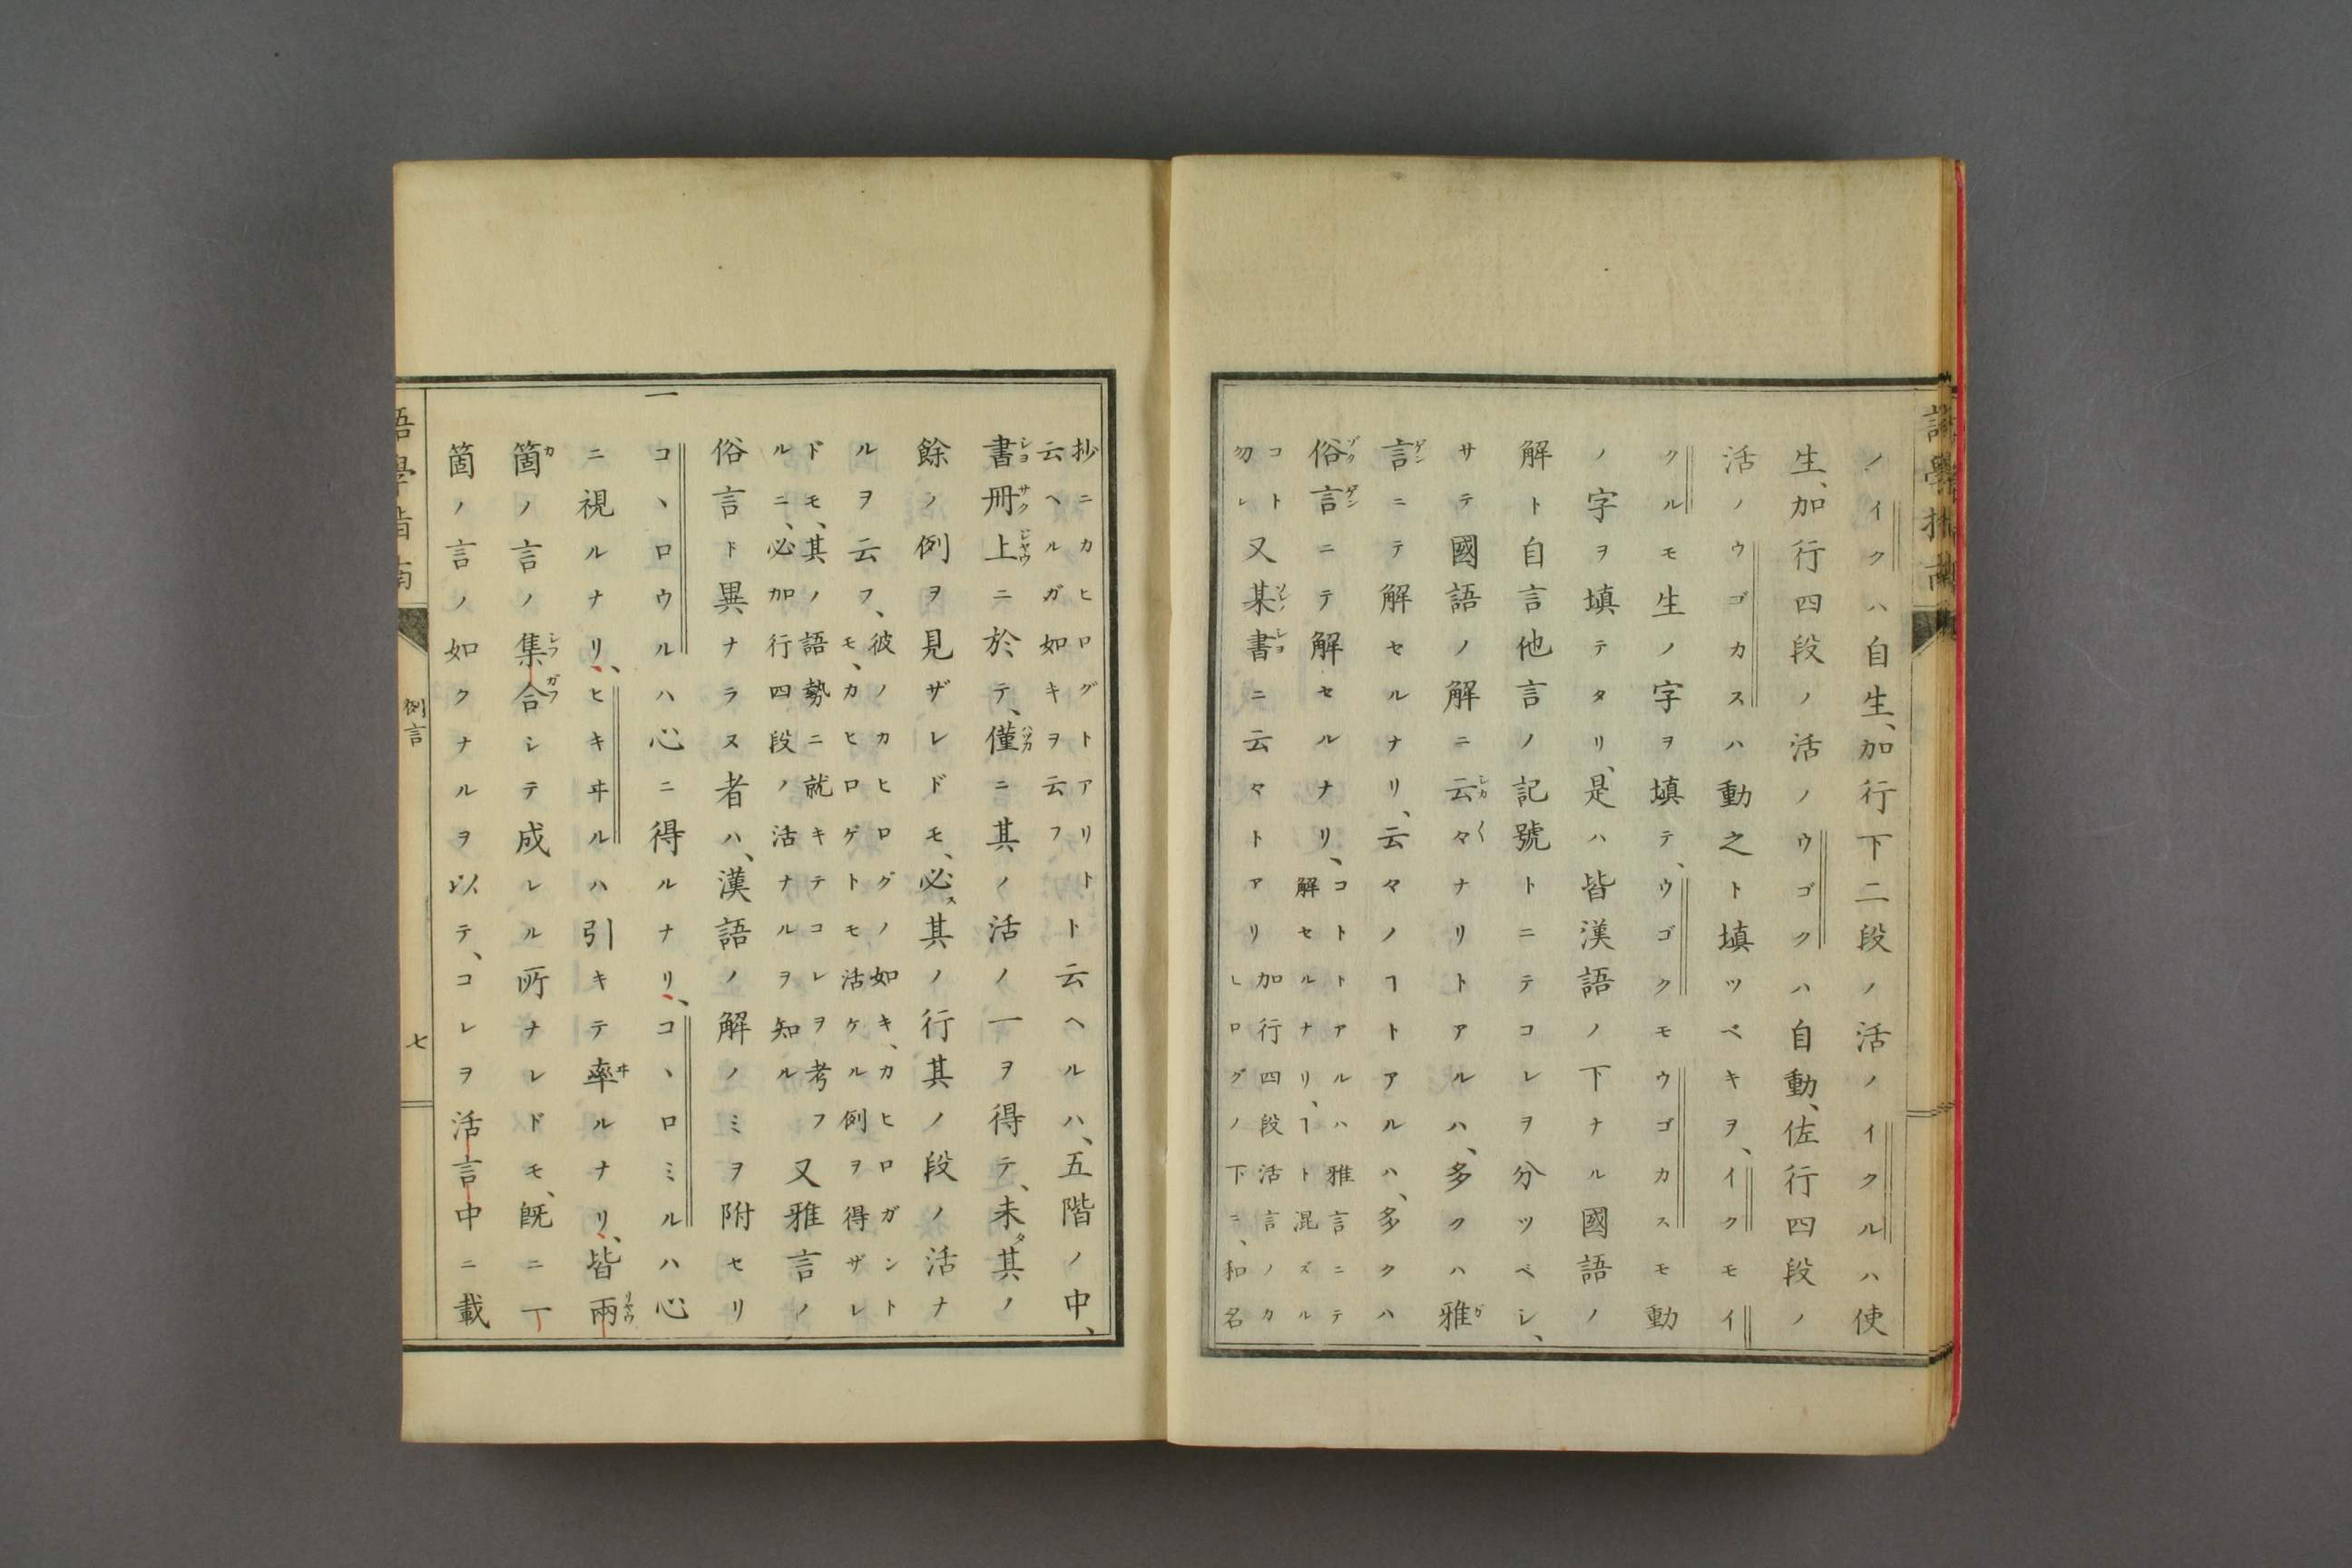 語學指南
ノイクハ自生、加行下二段ノ活ノイクルハ使
生、加行四段ノ活ノウゴクハ自動、佐行四段ノ
活ノウゴカスハ動之ト填ツベキヲ、イクモイ
クルモ生ノ字ヲ填テ、ウゴクモウゴカスモ動
ノ字ヲ填テタリ、是ハ皆漢語ノ下ナル國語ノ
解ト自言他言ノ記號トニテコレヲ分ツベシ、
サテ國語ノ解ニ云々ナリトアルハ、多クハ雅
言ニテ解セルナリ、云々ノヿトアルハ、多クハ
俗言ニテ解セルナリ、
コトトアルハ雅言ニテ
解セルナリ、ヿト混ズル
コト
勿レ
又某書ニ云々トアリ
加行四段活言ノカ
ヒログノ下ニ、和名
抄ニカヒログトアリト
云ヘルガ如キヲ云フ
ト云ヘルハ、五階ノ中、
書冊上ニ於テ、僅ニ其ノ活ノ一ヲ得テ、未其ノ
餘ノ例ヲ見ザレドモ、必其ノ行其ノ段ノ活ナ
ルヲ云フ、
彼ノカヒログノ如キ、カヒロガント
モ、カヒロゲトモ活ケル例ヲ得ザレ
ドモ、其ノ語勢ニ就キテコレヲ考フ
ルニ、必加行四段ノ活ナルヲ知ル
又雅言ノ
俗言ト異ナラヌ者ハ、漢語ノ解ノミヲ附セリ
一 コヽロウルハ心ニ得ルナリ、コヽロミルハ心
ニ視ルナリ、ヒキヰルハ引キテ率ルナリ、皆兩
箇ノ言ノ集合シテ成レル所ナレドモ、既ニ一
箇ノ言ノ如クナルヲ以テ、コレヲ活言中ニ載
語學指南
例言
七